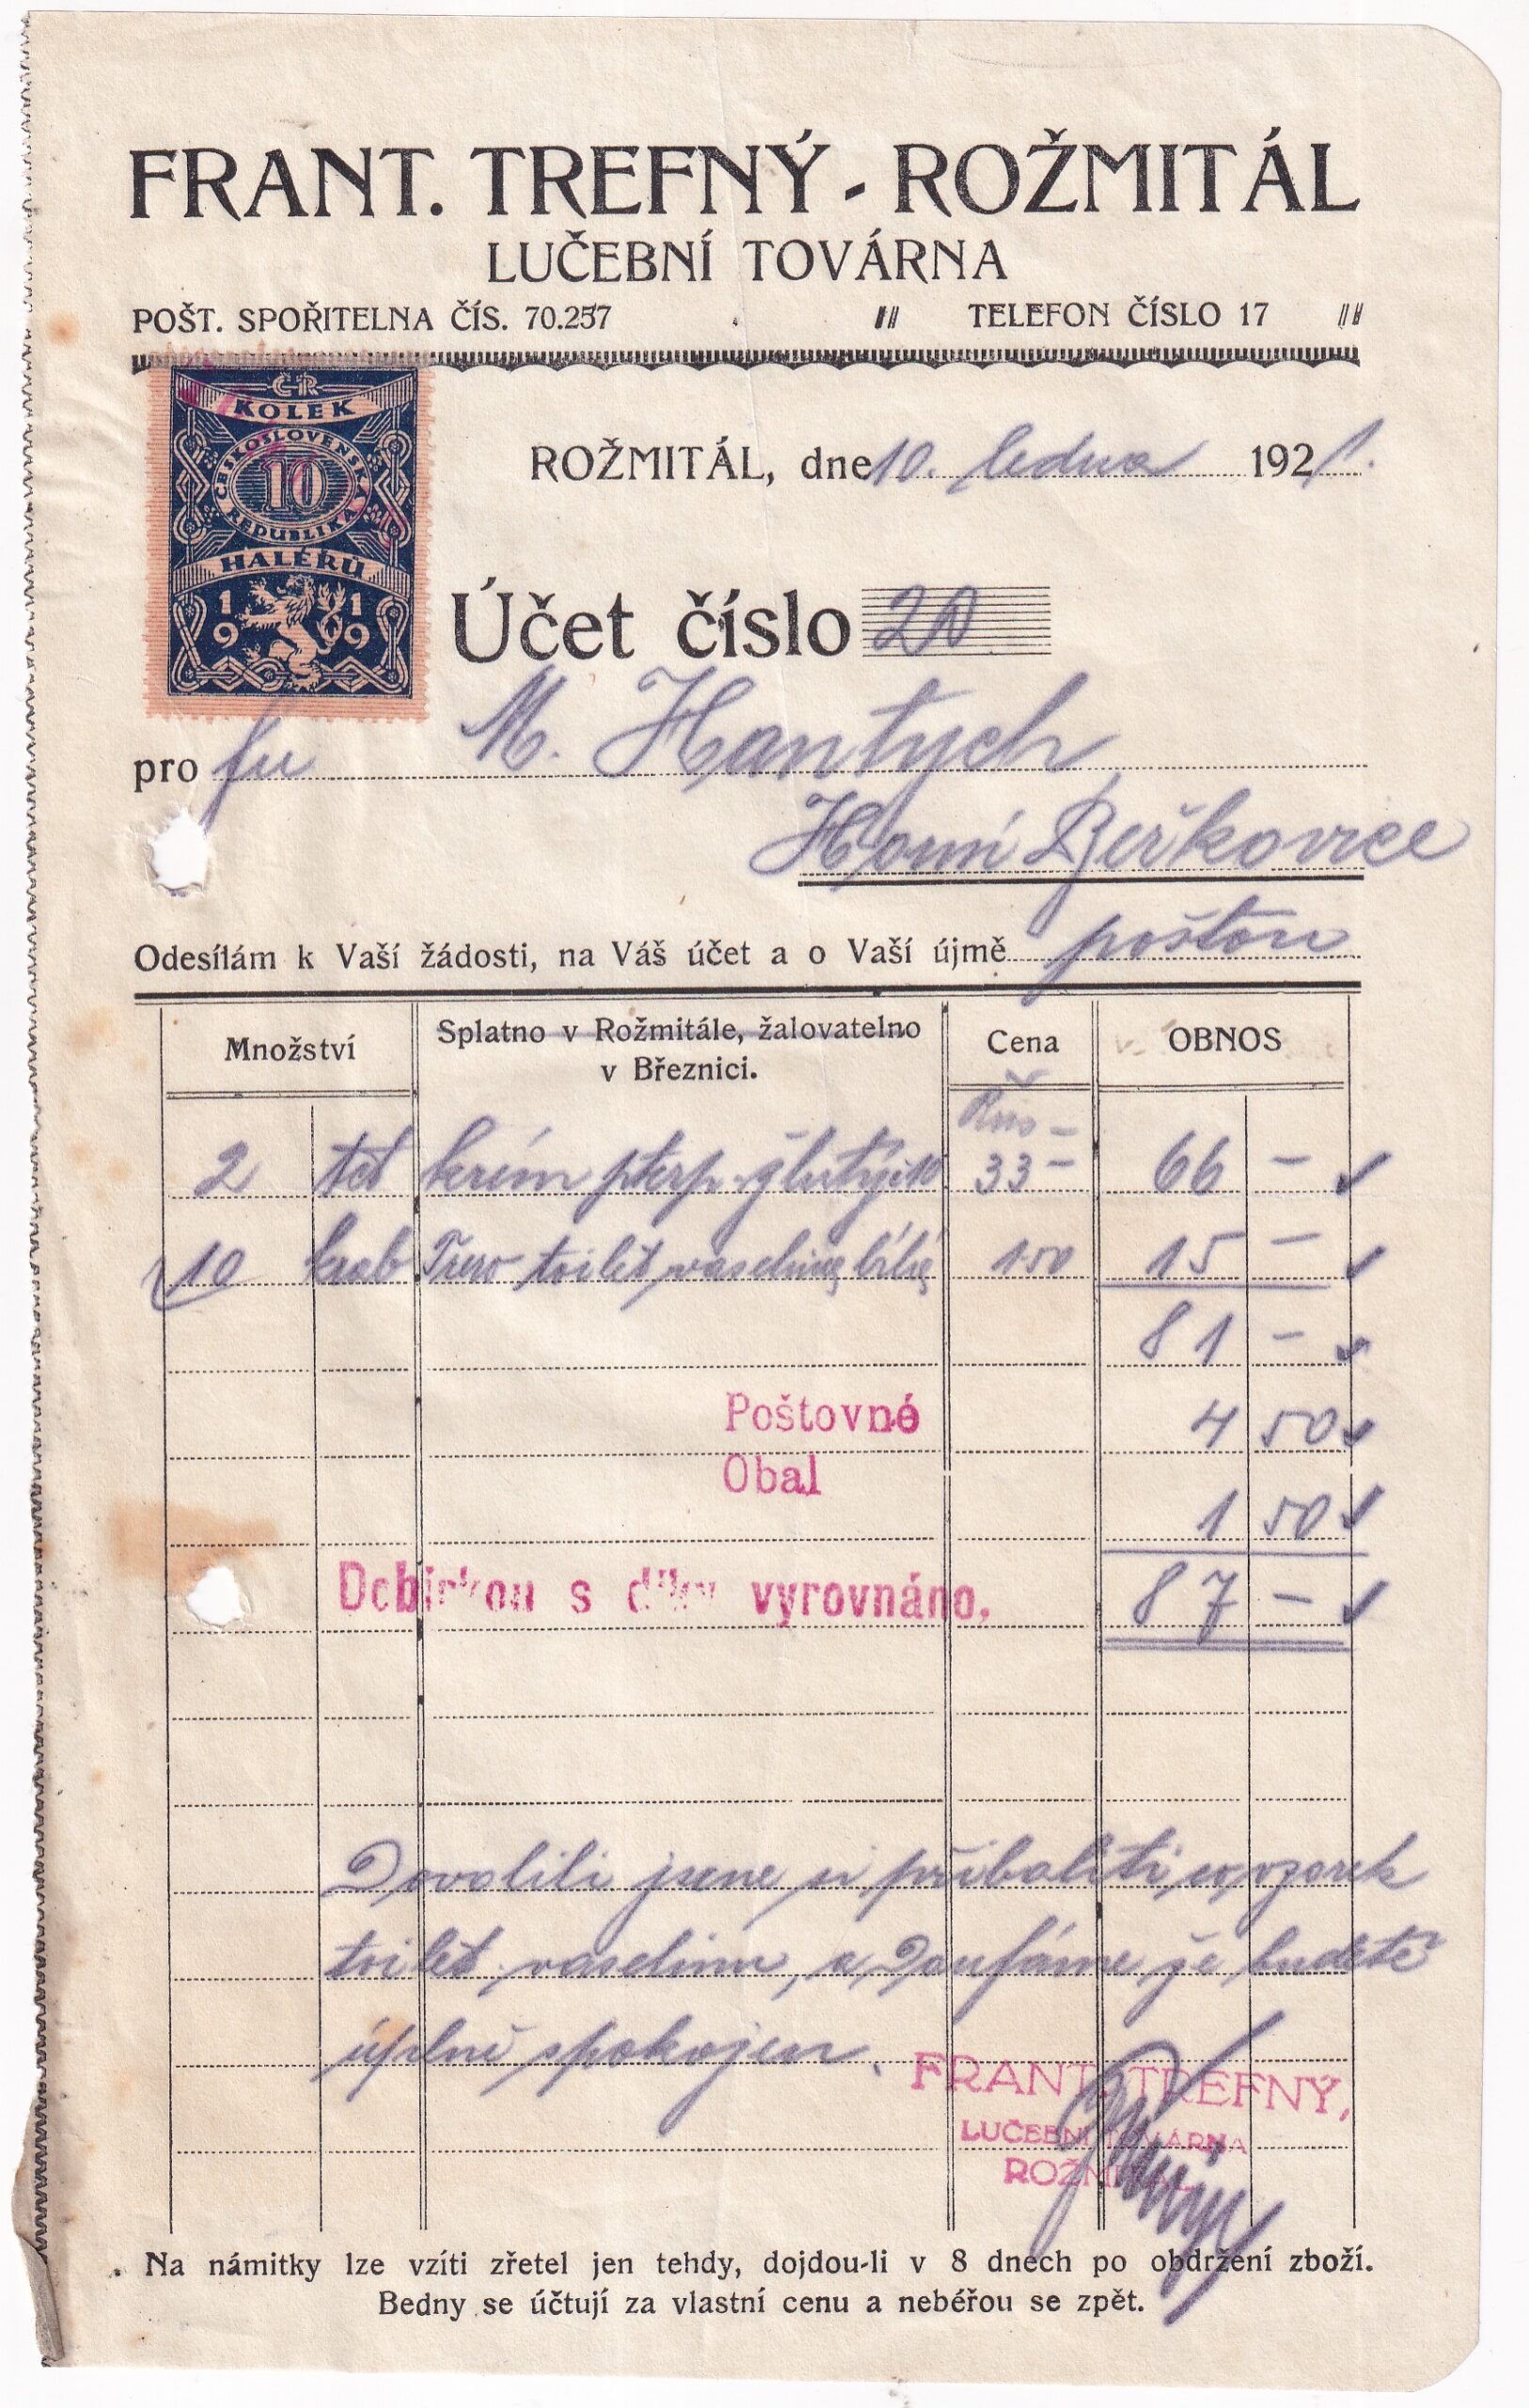 FRANT. TREFNÝ - ROŽMITÁL
LUČEBNÍ TOVÁRNA
POŠT. SPOŘITELNA ČÍS. 70.257 TELEFON ČÍSLO 17
ČR
KOLEK
ČESKOSLOVENSKÁ
10
REPUBLIKA
HALÉŘŮ
1919
ROŽMITÁL, dne 10. ledna 1921.
Účet číslo 20
pro fu M. Hantych
Horní Beřkovice
Odesílám k Vaší žádosti, na Váš účet a o Vaší újmě poštou
Množství Splatno v Rožmitále, žalovatelno v Březnici. Cena OBNOS
2 krém 33 - 66 -
10 krab toilet vaseliny bílé 1·50 15 -
81 -
Poštovné 4 50
Obal 1 50
Dobírkou s díky vyrovnáno. 87 -
Dovolili jsme si přibaliti vzorek
toilet. vaseliny, a doufáme že budete
úplně spokojen.
FRANT. TREFNÝ,
LUČEBNÍ TOVÁRNA
ROŽMITÁL
Na námitky lze vzíti zřetel jen tehdy, dojdou-li v 8 dnech po obdržení zboží.
Bedny se účtují za vlastní cenu a nebéřou se zpět.